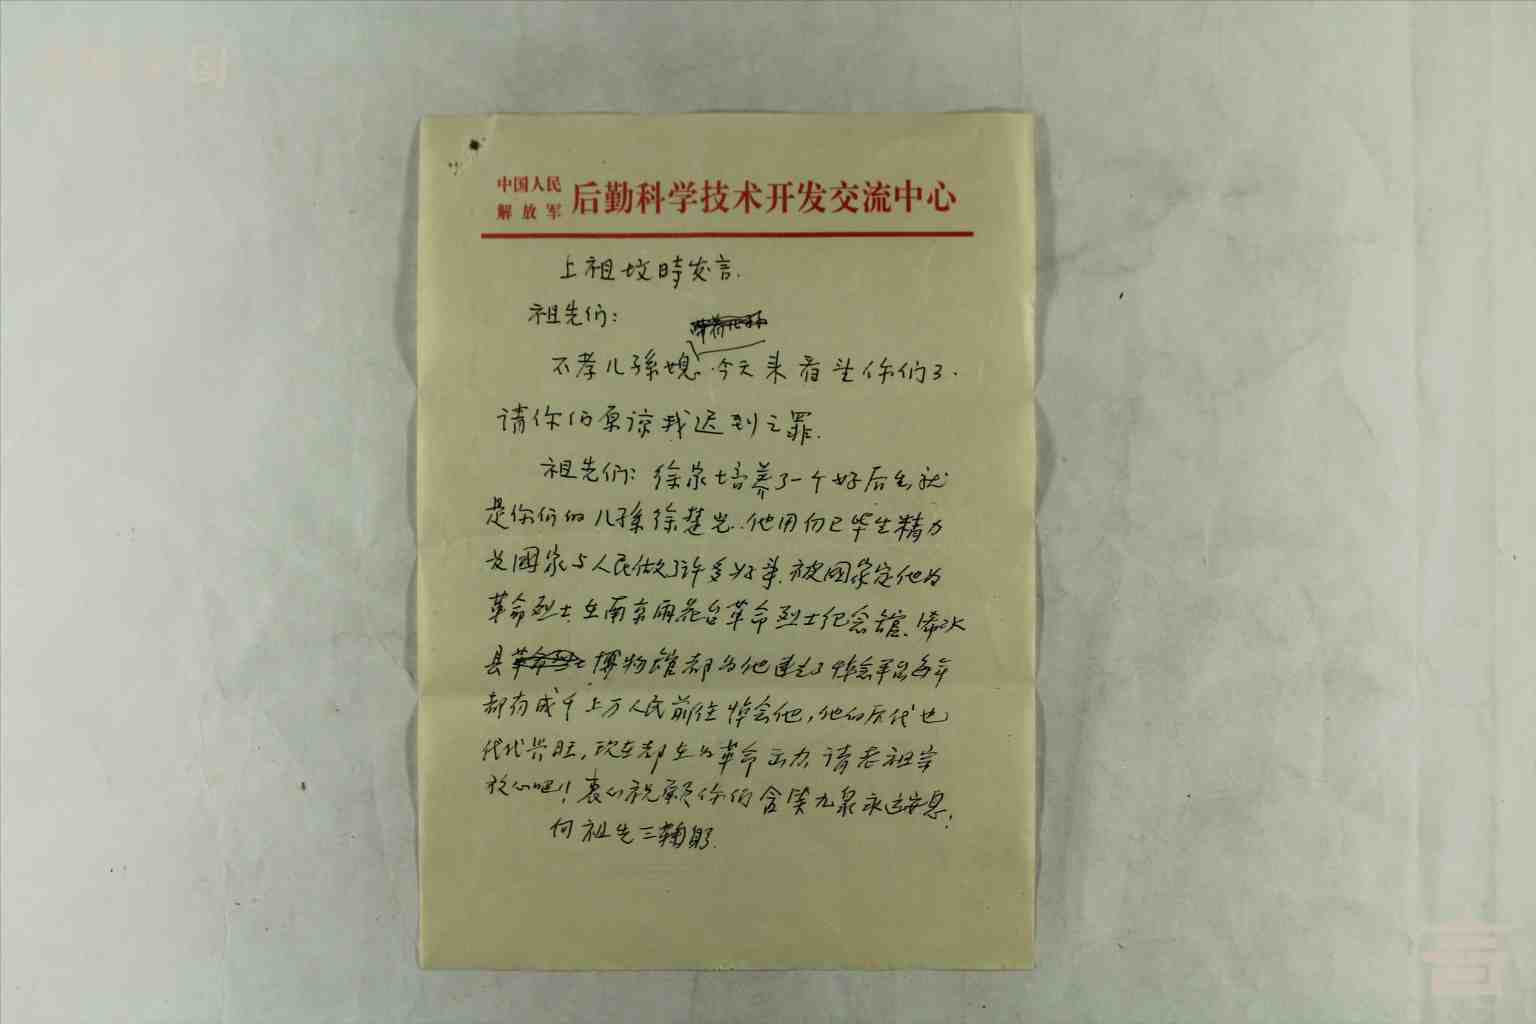 中国人民
解放军
后勤科学技术开发交流中心
上祖坟時发言.
祖先们:
不孝儿孫媳今天来看望你们了.
请你们原谅我迟到之罪.
祖先们: 徐家培养了一个好后生就
是你们的儿孫徐楚光.他用自己毕生精力
为国家与人民做了许多好事.被国家定他为
革命烈士.在南京雨花台革命烈士纪念馆、浠水
县博物馆都为他建立了悼念平台每年
都有成千上万人民前往悼念他,他的后代也
代代兴旺,现在都在为革命出力.请老祖宗
放心吧!衷心祝愿你们含笑九泉永远安息!
向祖先三鞠躬.
国
言